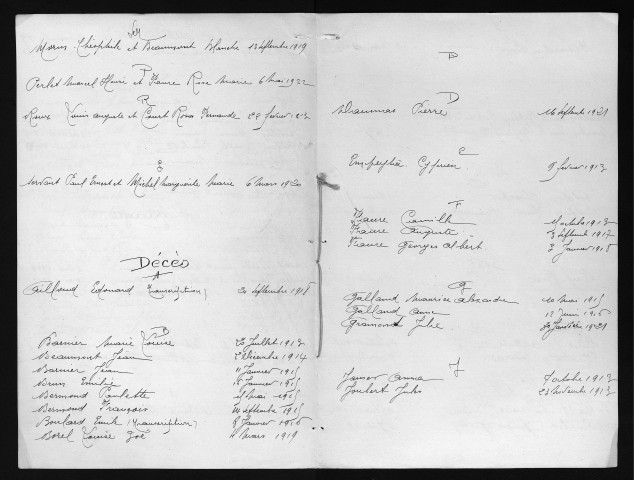 M
Morin Théophile et Beaumont Blanche 13 septembre 1919
P
Perlet Marcel Henri et Faure Rose Marie 6 mai 1922
R
Roux Louis auguste et Court Rosa Fernande 22 février 1913
S
Servant Paul Ernest et Michel Marguerite Marie 6 mars 1920
Décès
A
Ailloud Edouard (Transcription) 20 septembre 1918
B
Barnier Marie Louise 20 juillet 1913
Beaumont Jean décembre 1914
Barnier Jean 11 janvier 1915
Brun Emilie 15 janvier 1915
Bermond Paulette mai 1915
Bermond François septembre 1915
Boulard Emile (Transcription) 8 janvier 1916
Borel Louise Zoé 11 mars 1919
D
D
Daumas Pierre 16 septembre 1921
E
Cyprien février 1913
F
Faure Camille octobre 1913
Faure Auguste 3 septembre 1917
Faure Georges Albert 2 janvier 1918
G
Galland Maurice Alexandre 10 mars 1915
Galland Anne 12 juin 1916
Gramont Julie 1921
J
Janser Anna 7 octobre 1913
Joubert Jules 23 novembre 1913